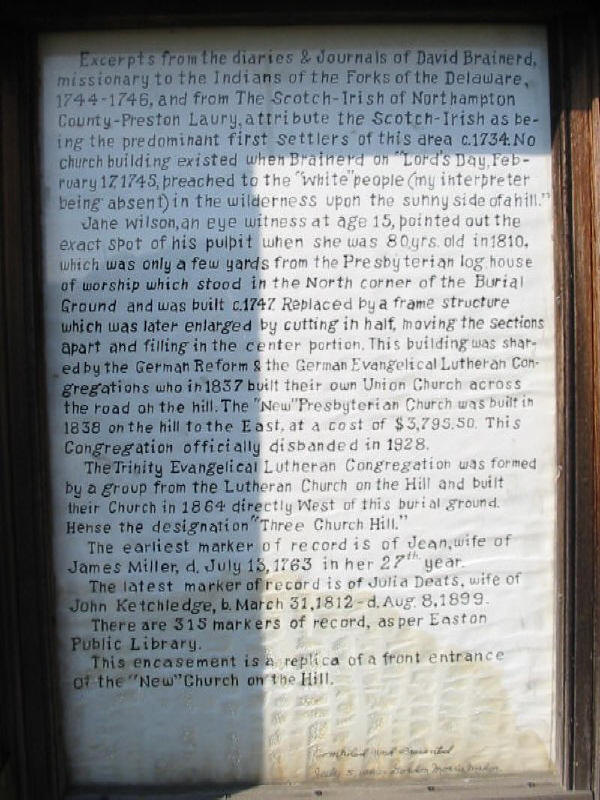 Excerpts from the diaries & Journals of David Brainerd,
missionary to the Indians of the Forks of the Delaware,
1744-1746, and from The Scotch-Irish of Northampton
County-Preston Laury, attribute the Scotch-Irish as be-
ing the predominant first settlers of this area c.1734. No
church building existed when Brainerd on "Lord's Day, Feb-
ruary 17, 1745, preached to the "white" people (my interpreter
being absent) in the wilderness upon the sunny side of a hill."
Jane Wilson, an eye witness at age 15, pointed out the
exact spot of his pulpit when she was 80 yrs. old in 1810,
which was only a few yards from the Presbyterian log house
of worship which stood in the North corner of the Burial
Ground and was built c.1747. Replaced by a frame structure
which was later enlarged by cutting in half, moving the sections
apart and filling in the center portion. This building was shar-
ed by the German Reform & the German Evangelical Lutheran Con-
gregations who in 1837 built their own Union Church across
the road on the hill. The "New" Presbyterian Church was built in
1838 on the hill to the East, at a cost of $3,795.50. This
Congregation officially disbanded in 1928.
The Trinity Evangelical Lutheran Congregation was formed
by a group from the Lutheran Church on the Hill and built
their Church in 1864 directly West of this burial ground.
Hense the designation "Three Church Hill."
The earliest marker of record is of Jean, wife of
James Miller, d. July 13, 1763 in her 27th year.
The latest marker of record is of Julia Deats, wife of
John Ketchledge, b. March 31, 1812 - d. Aug. 8, 1899.
There are 315 markers of record, as per Easton
Public Library.
This encasement is a replica of a front entrance
of the "New" Church on the Hill.
Compiled and Presented
July